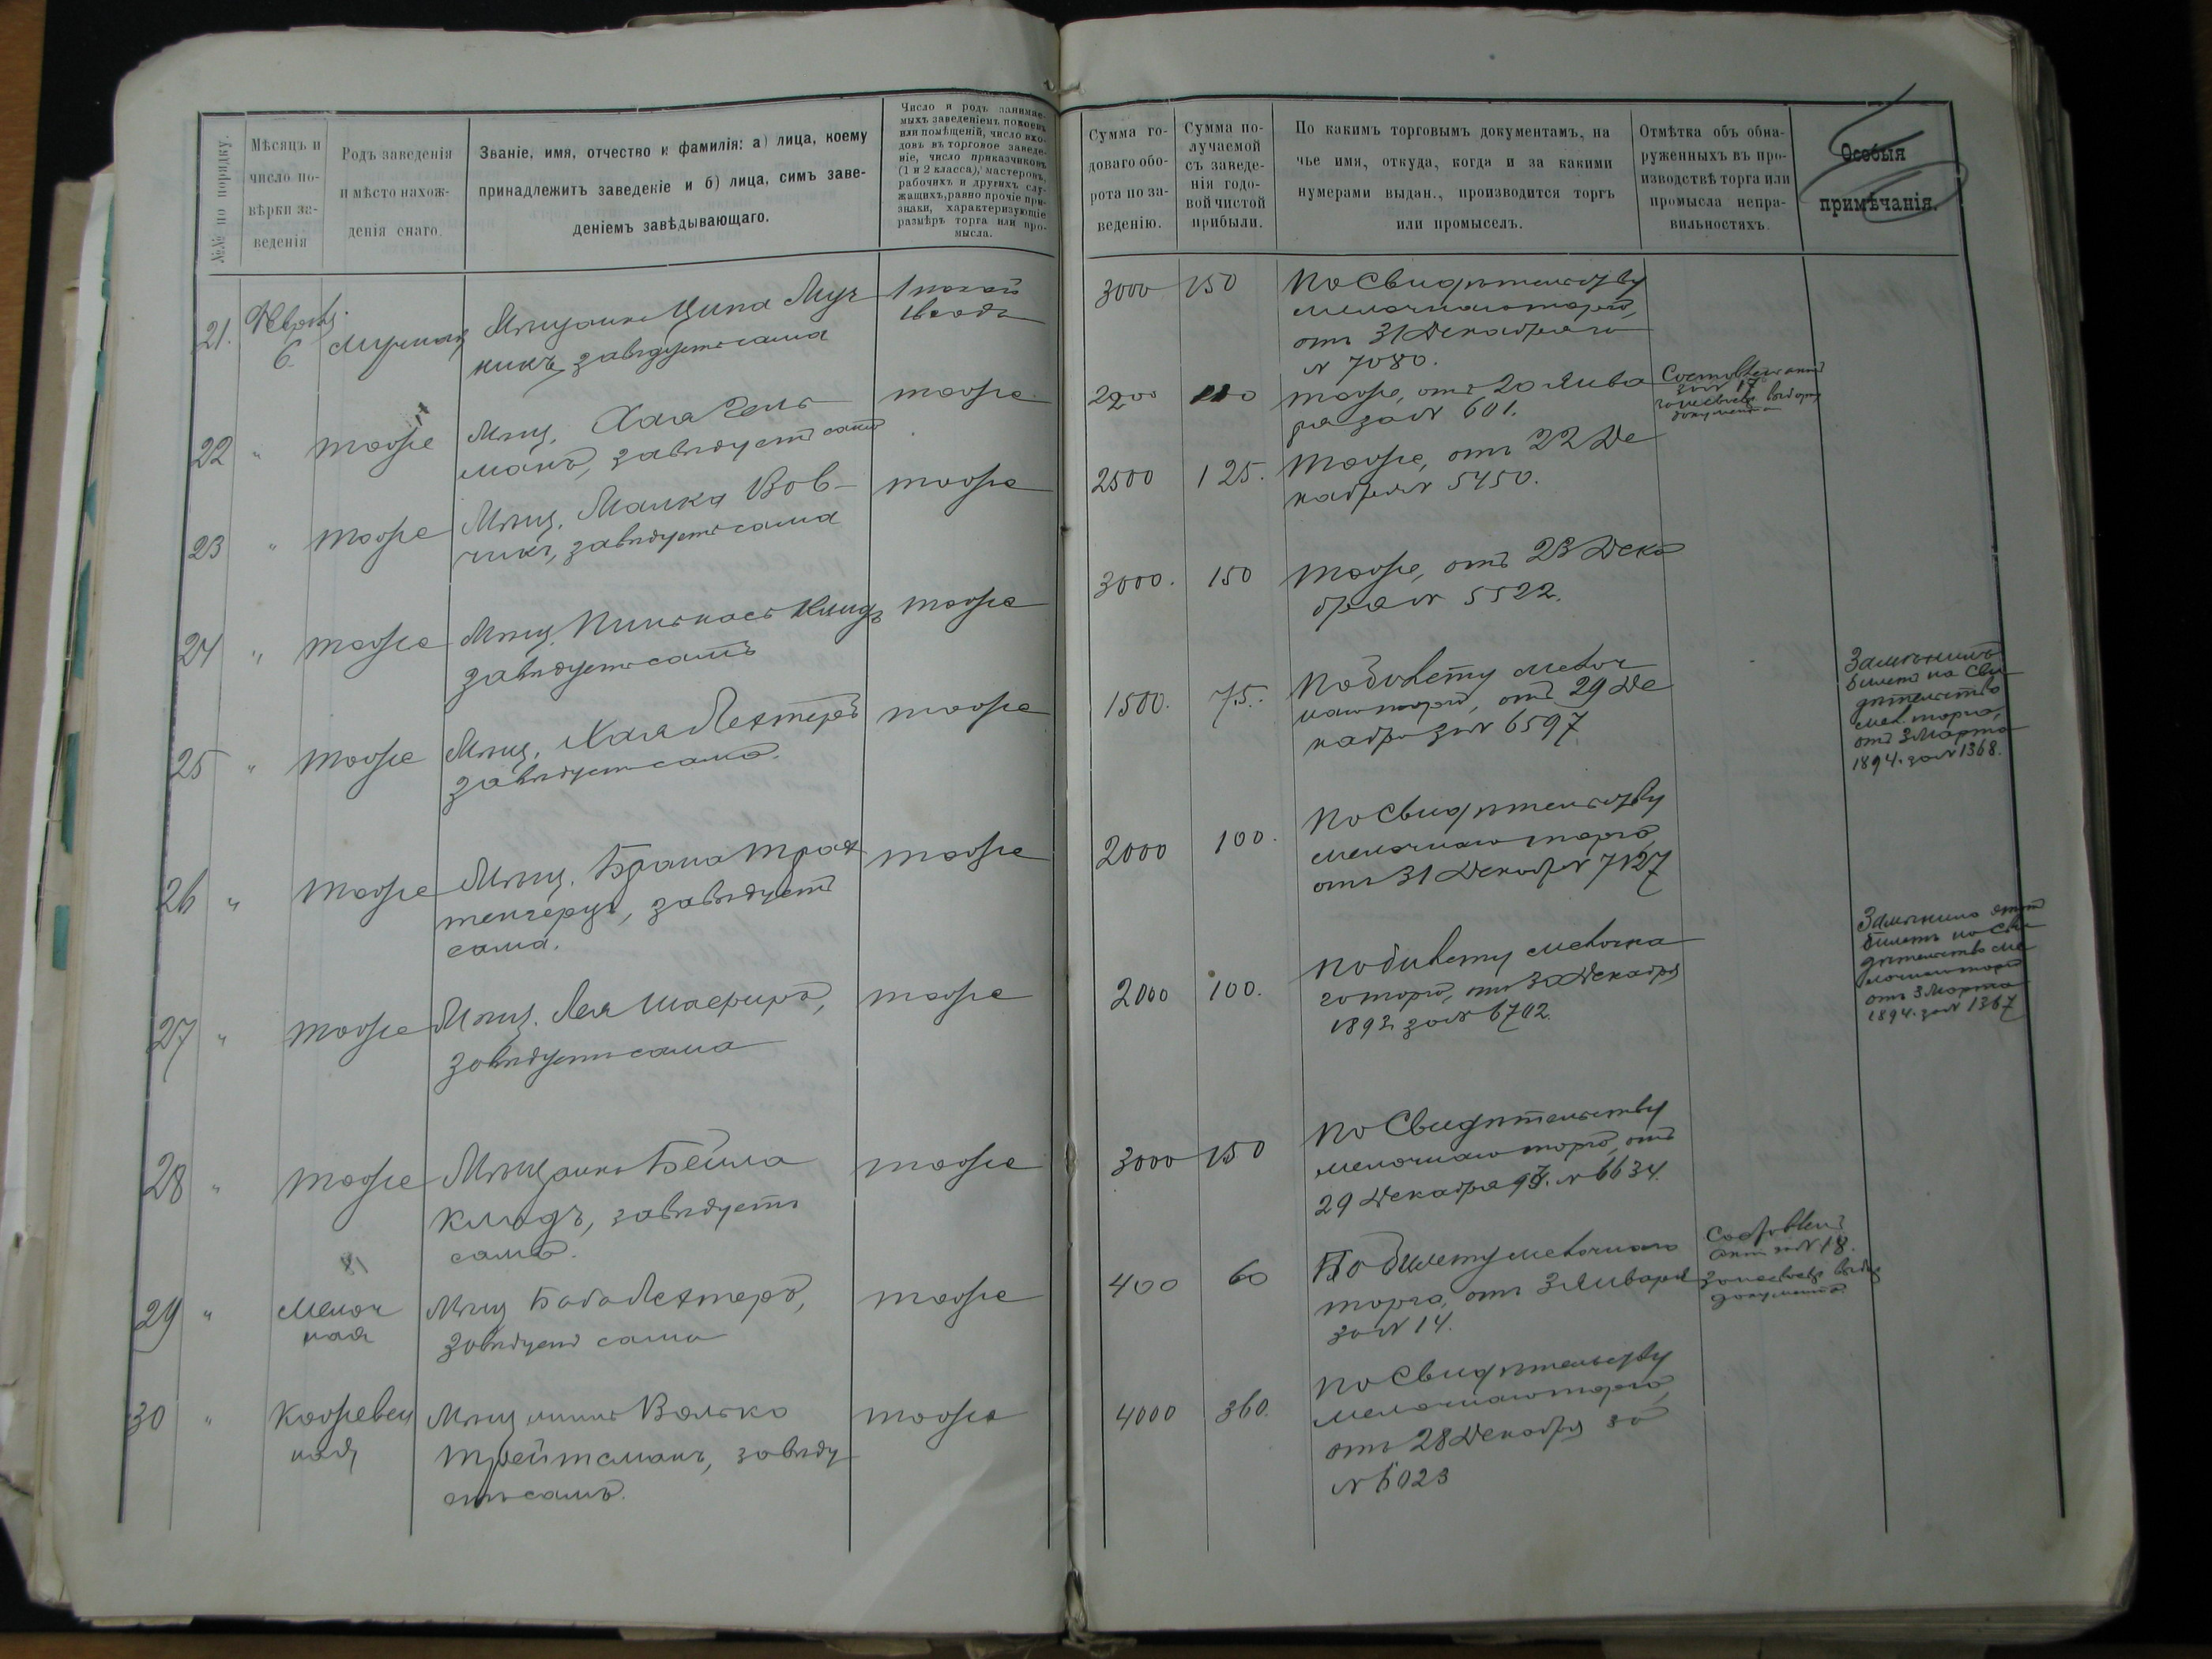 №№ по порядку.
Мѣсяцъ и
число по-
вѣрки за-
веденія
Родъ заведенія
и мѣсто нахож-
денія снаго.
Званіе, имя, отчество и фамилія: а) лица, коему
принадлежитъ заведеніе и б) лица, симъ заве-
деніемъ завѣдывающаго.
Число и родъ занимае-
мыхъ заведеніемъ покоевъ
или помѣщеній, число вхо-
довъ въ торговое заведе-
ніе, число приказчиковъ
(1 и 2 класса), мастеровъ,
рабочихъ и другихъ слу-
жащихъ, равно прочіе при-
знаки, характеризующіе
размѣръ торга или про-
мысла.
Сумма го-
доваго обо-
рота по за-
веденію.
Сумма по-
лучаемой
съ заведе-
нія годо-
вой чистой
прибыли.
По какимъ торговымъ документамъ, на
чье имя, откуда, когда и за какими
нумерами выдан., производится торгъ
или промыселъ.
Отмѣтка объ обна-
руженныхъ въ про-
изводствѣ торга или
промысла непра-
вильностяхъ.
Особыя
примѣчанія.
21.
6
Мѣщанка Ципа Муч
никъ, завѣдуетъ сама
1 покой
1 входъ
3000
150
По Свидѣтельству
мелочнаго торга,
отъ 31 Декабря за
№ 7080.
22
"
тоже
Мѣщ. Хая Гель
манъ, завѣдуетъ сама
тоже
2200
тоже, отъ 20 Янва
ря за № 601.
Составленъ актъ
за № 17
документа
23
"
тоже
Мѣщ. Малка Вов-
чикъ, завѣдуетъ сама
тоже
2500
125.
Тоже, отъ 22 Де
кабря № 5450.
24
"
тоже
Мѣщ. Пинькасъ
завѣдуетъ самъ
тоже
3000.
150
тоже, отъ 23 Дека
бря № 5522.
25
"
тоже
Мѣщ. Хая Лехтеръ
завѣдуетъ сама.
тоже
1500.
75.
По билету мелоч
наго торга, отъ 29 Де
кабря за № 6597
билетъ на Сви
дѣтельство
мел. торга,
отъ 3 Марта
1894. за № 1368.
26
"
тоже
Мѣщ.
завѣдуетъ
сама.
тоже
2000
100.
По Свидѣтельству
мелочнаго торга,
отъ 31 Декабр № 7127
27
"
тоже
Мѣщ. Лея Шаефиръ,
завѣдуетъ сама
тоже
2000
100.
По билету мелочна
го торга, отъ 30 Декабря
1893 за № 6702.
билетъ на Сви
дѣтельство ме
лочнаго торга
отъ 3 Марта
1894. за № 1367
28
"
тоже
Мѣщанка Бейла
завѣдуетъ
сама.
тоже
3000
150
По Свидѣтельству
мелочнаго торга, отъ
29 Декабря 93. № 6634.
29
"
Мелоч
ная
Мѣщ Баба Лехтеръ,
завѣдуетъ сама
тоже
400
60
По билету мелочнаго
торга, отъ 3 Января
за № 14.
Составленъ
актъ за № 18.
документа
30
"
Кожевен
ная
Волько
Трейтсманъ, завѣду
етъ самъ.
тоже
4000
360.
По Свидѣтельству
мелочнаго торга,
отъ 28 Декабря за
№ 6023